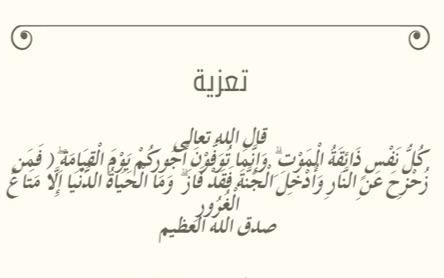 تعزية
قال الله تعالى
كُلُّ نَفْسٍ ذَائِقَةُ الْمَوْتِ ۗ وَإِنَّمَا تُوَفَّوْنَ أُجُورَكُمْ يَوْمَ الْقِيَامَةِ ۖ( فَمَن
زُحْزِحَ عَنِ النَّارِ وَأُدْخِلَ الْجَنَّةَ فَقَدْ فَازَ ۗ وَمَا الْحَيَاةُ الدُّنْيَا إِلَّا مَتَاعُ
الْغُرُورِ
صدق الله العظيم